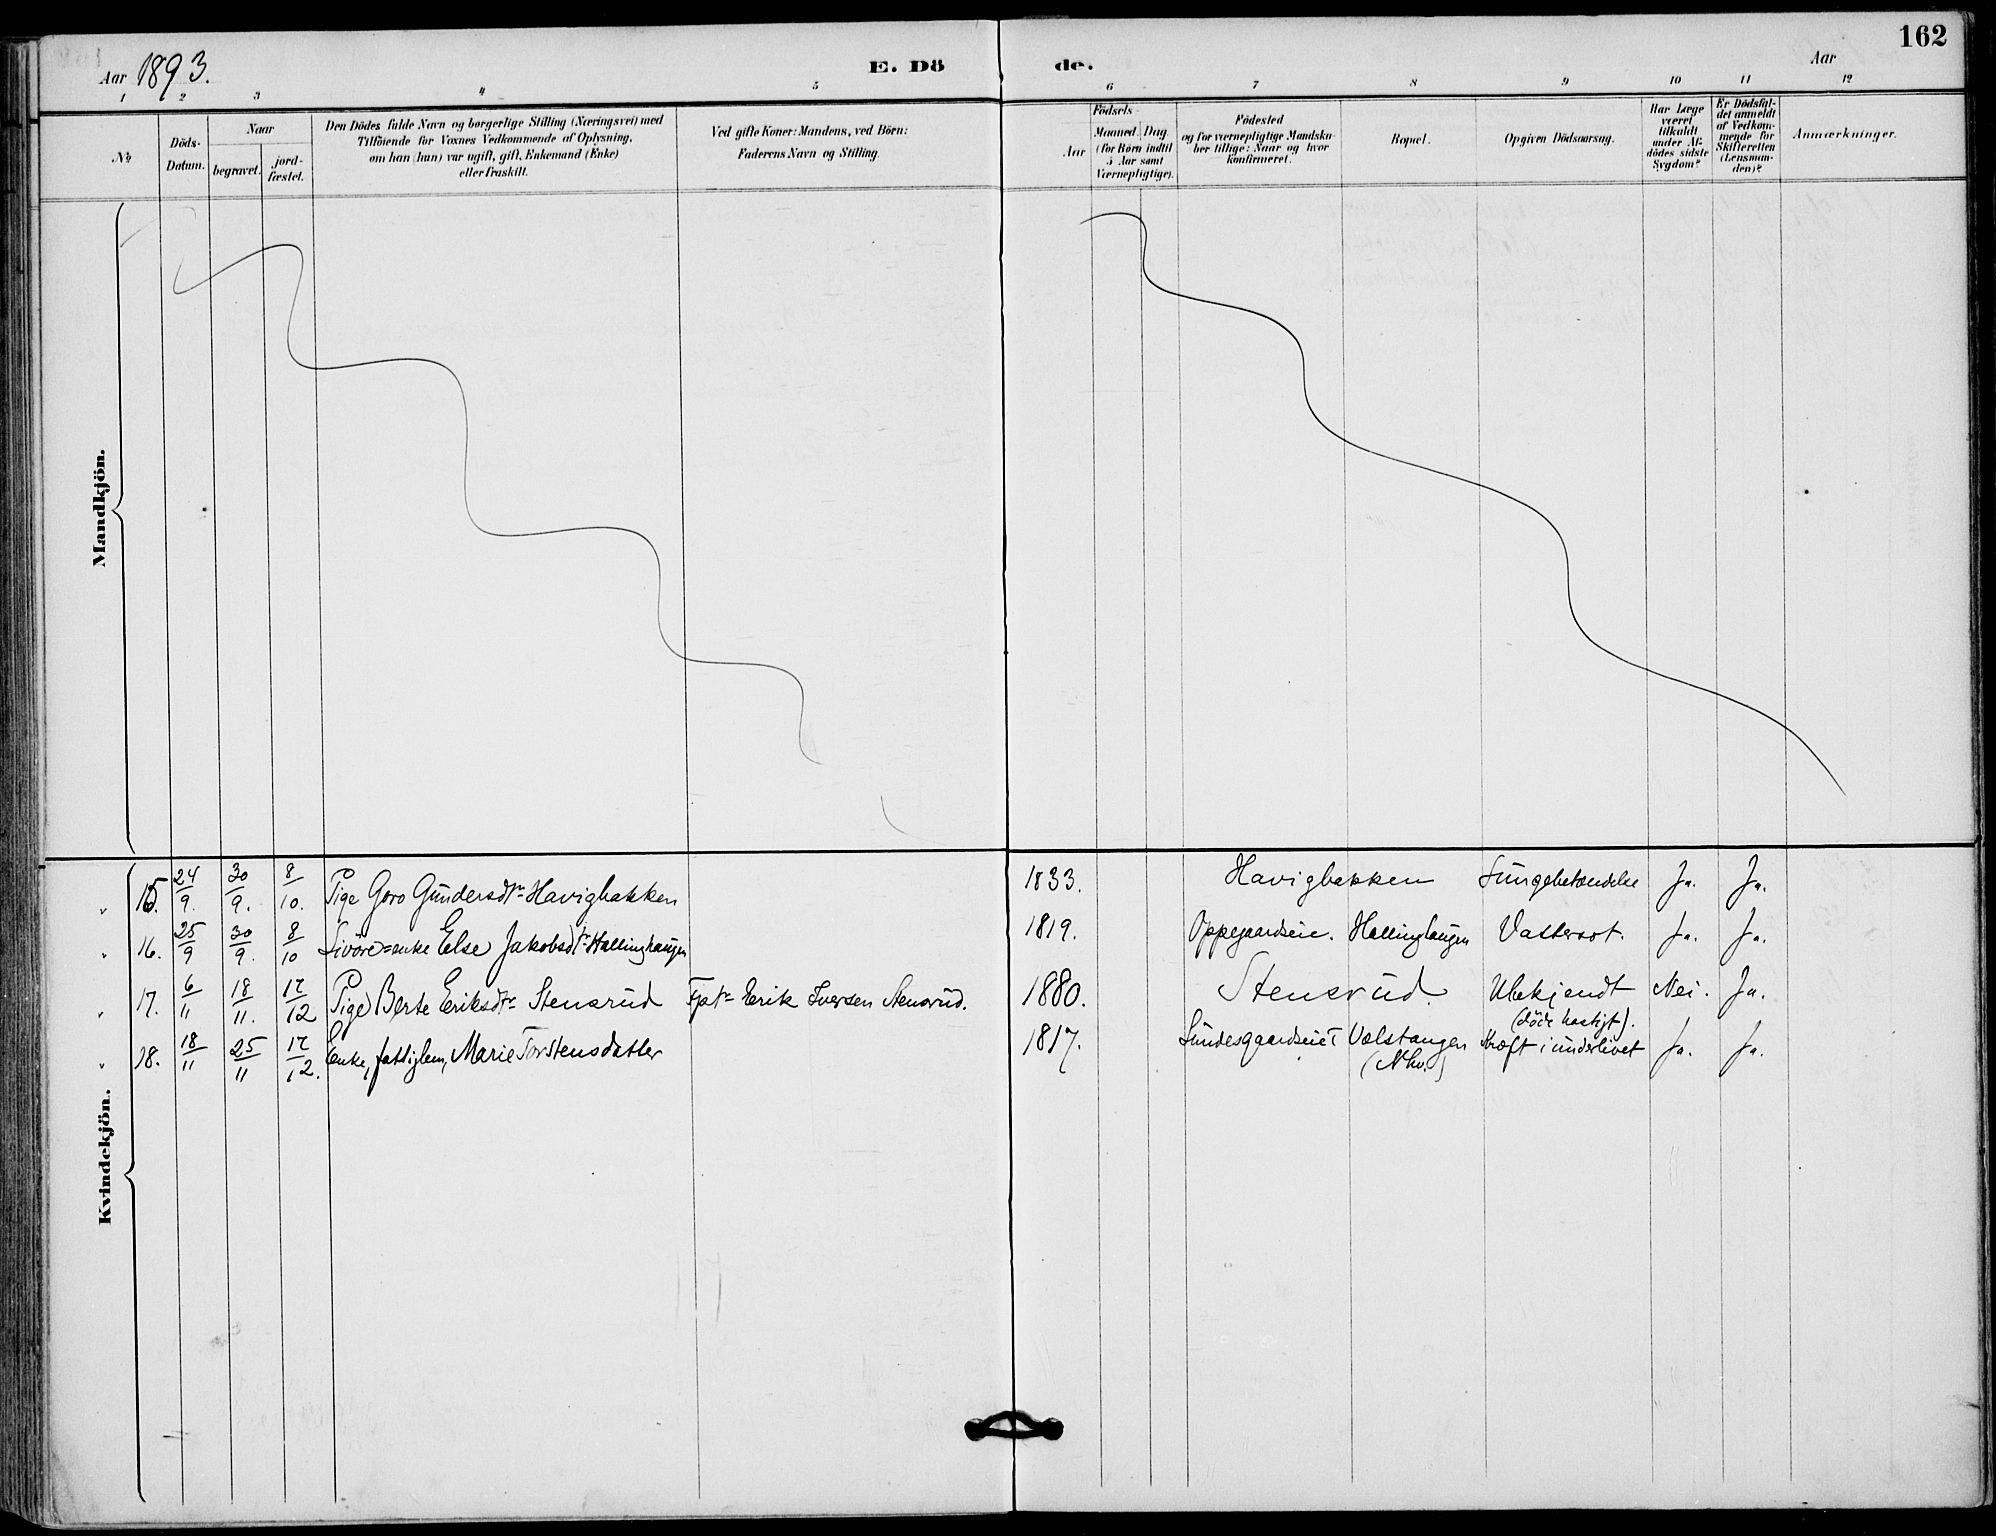 162
Aar 1893. E. Dö de. Aar
1 2 3 4 5 6 7 8 9 10 11 12
№
Döds-
Datum.
Naar
begravet.
jord-
fæstet.
Den Dödes fulde Navn og borgerlige Stilling (Næringsvei) med
Tilföiende for Voxnes Vedkommende af Oplysning,
om han (hun) var ugift, gift, Enkemand (Enke)
eller fraskilt.
Ved gifte Koner: Mandens, ved Börn:
Faderens Navn og Stilling.
Födsels-
Aar
Maaned. Dag
(for Börn indtil
5 Aar samt
Værnepligtige).
Födested
og for værnepligtige Mandska-
ber tillige: Naar og hvor
konfirmeret.
Bopæl.
Opgiven Dödsaarsag.
Har Læge
været
tilkaldt
under Af-
dödes sidste
Sygdom?
Er Dödsfal-
det anmeldt
af Vedkom-
mende for
Skifteretten
(Lensman-
den)?
Anmærkninger.
Mandkjön.
Kvindekjön.
" 15. 24/9. 30/9. 8/10. Pige Goro Gundersdtr Havigbakken 1833. Havigbakken Lungebetændelse Ja. Ja.
" 16. 25/9 30/9. 8/10 enke Else Jakobsdtr Hallinghaugen 1819. Oppegaardseie. Hallinghaugen Vattersot. Ja. Ja.
" 17. 6/11 18/11. 17/12 Pige Berte Eriksdtr Stensrud Erik Iversen Stensrud. 1880. Stensrud Ubekjendt Nei. Ja.
(döde hastigt).
" 18. 18/11 25/11 17/12. Enke, fattiglem, Marie Torstensdatter 1817. Sundesgaardseiet Valstangen Kræft i underlivet Ja. Ja.